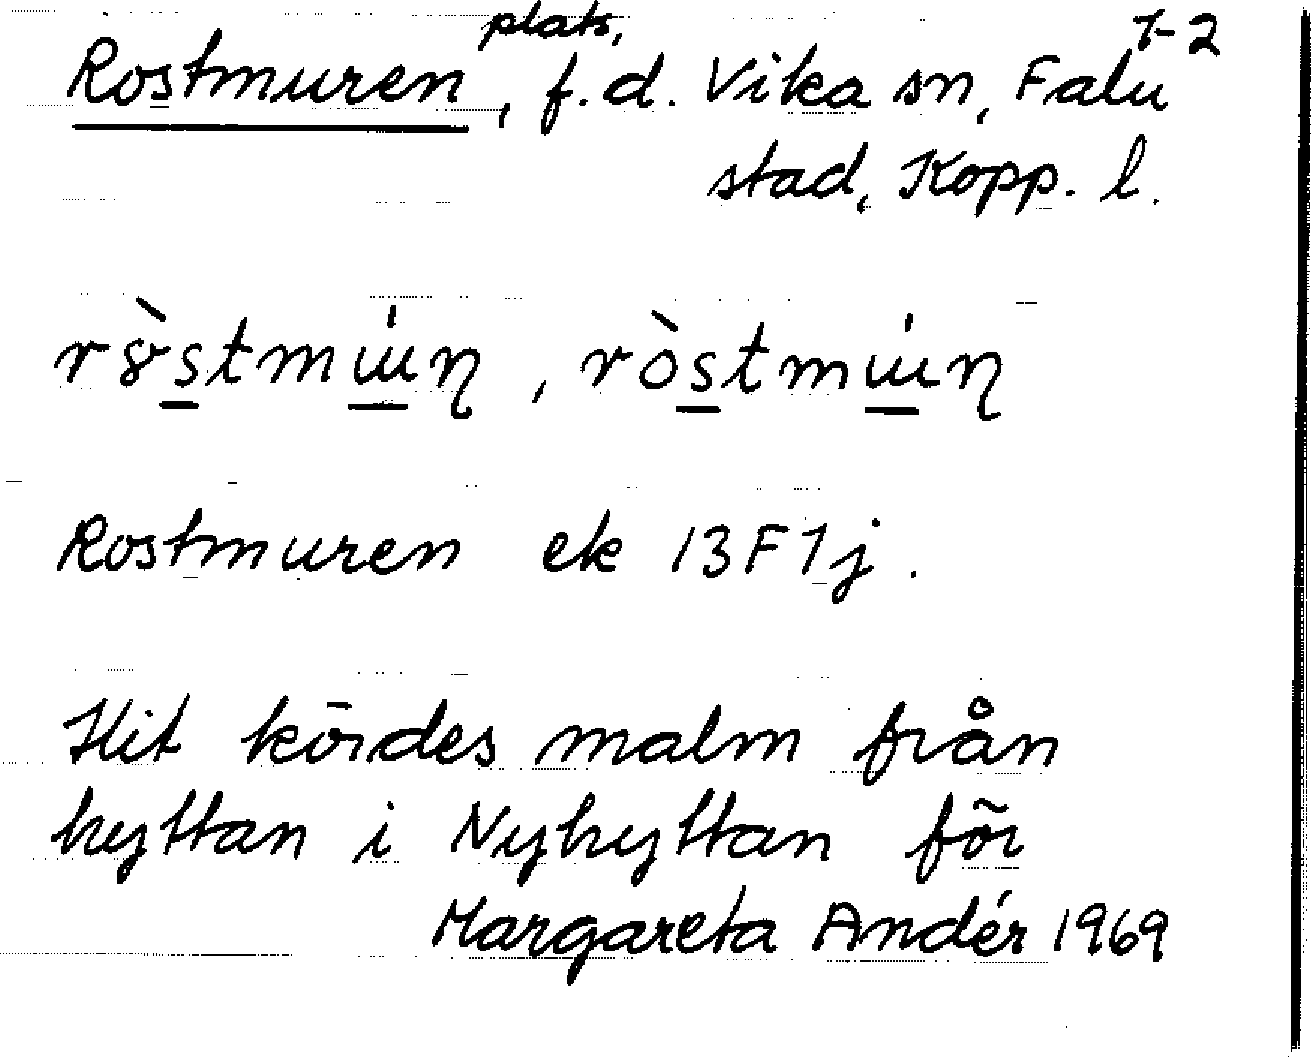 Rostmuren, plats, f.d. Vika sn, Falu 1-2
stad, Kopp. l.
rɤ̀stmɯ́ɳ, ròstmɯ́ɳ
Rostmuren ek 13F1j.
Hit kördes malm från
hyttan i Nyhyttan för
Margareta Andér 1969